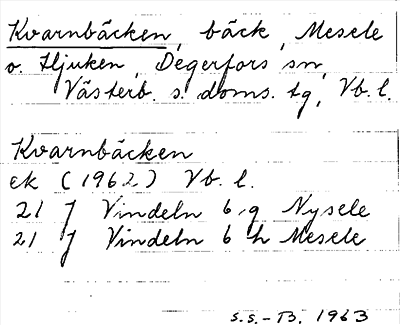 Kvarnbäcken, bäck, Mesele
o. Hjuken, Degerfors sn,
Västerb. s. doms. tg, Vb. l.
Kvarnbäcken
ek (1962) Vb. l.
21 J Vindeln 6 g Nysele
21 J Vindeln 6 h Mesele
S.S.-B. 1963